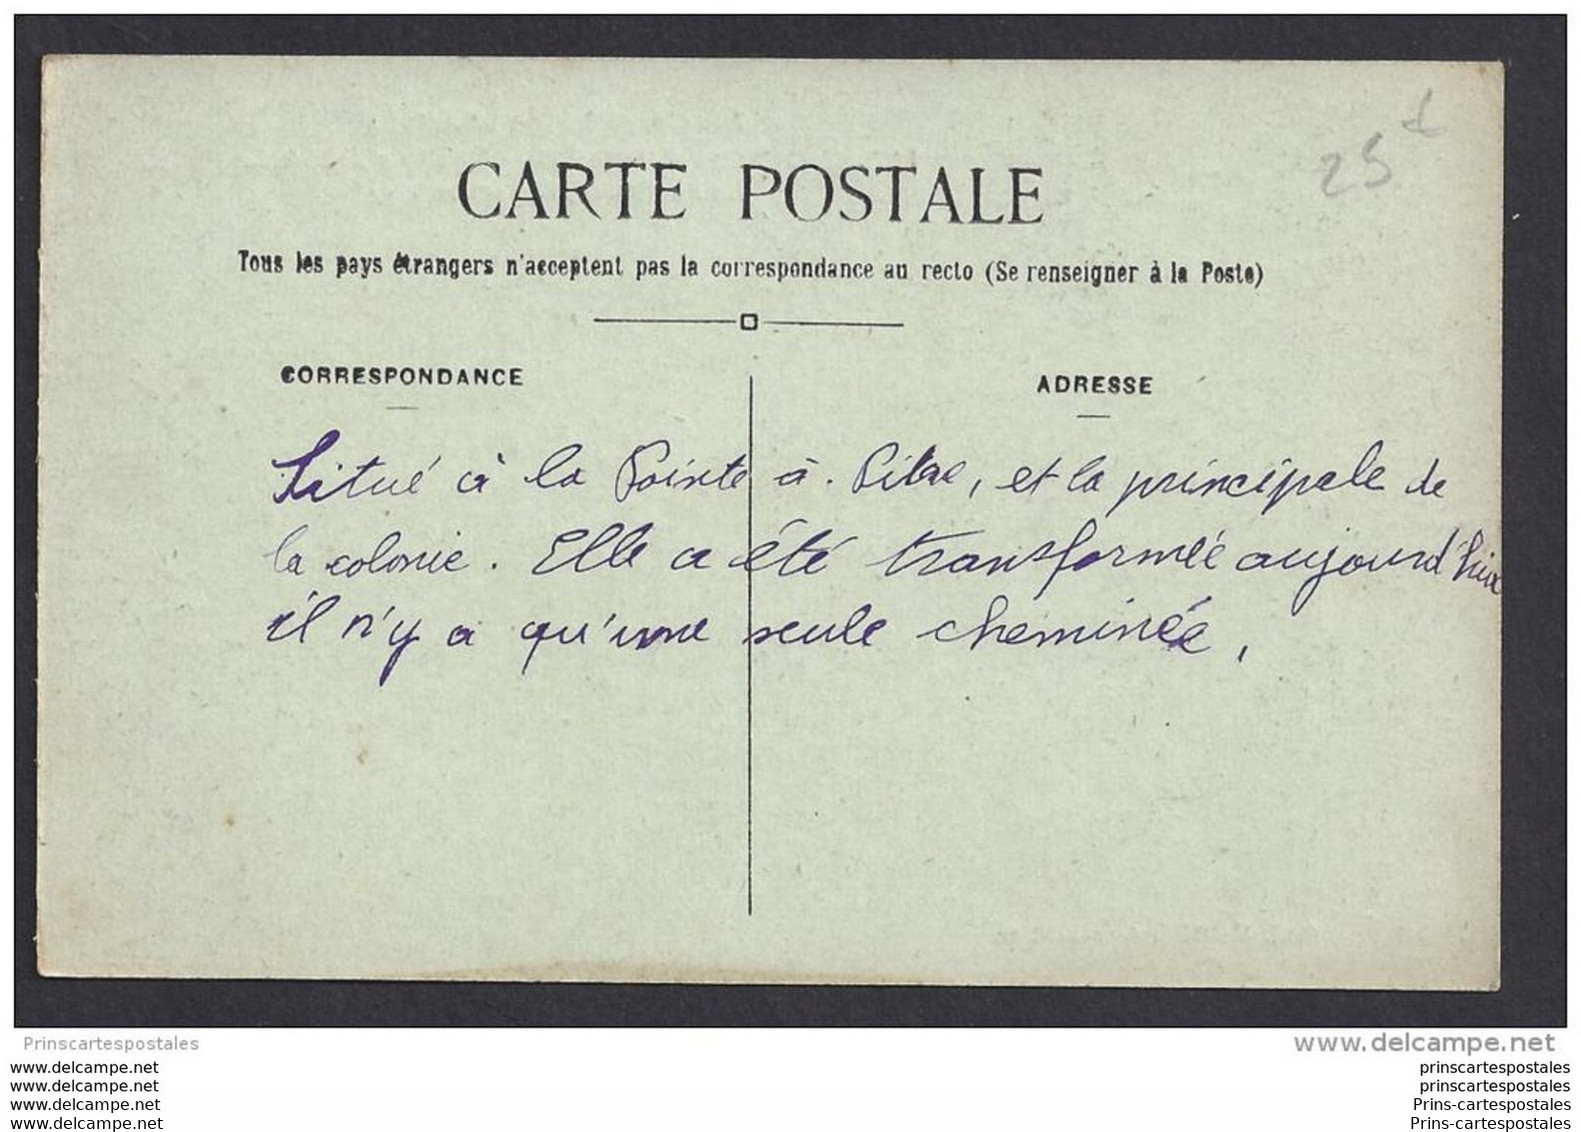 25 £
CARTE POSTALE
Tous les pays étrangers n'acceptent pas la correspondance au recto (Se renseigner à la Poste)
CORRESPONDANCE
ADRESSE
Situé à la Pointe à. Pitre, et la principale de
la colonie. Elle a été transformée aujourd'hui
il n'y a qu'une seule cheminée,
Prinscartespostales
www.delcampe.net
www.delcampe.net
www.delcampe.net
www.delcampe.net
www.delcampe.net
prinscartespostales
prinscartespostales
Prins-cartespostales
Prins-cartespostales